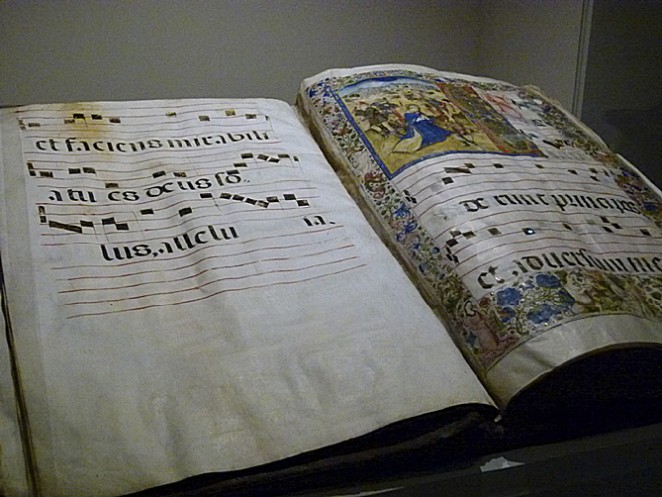 et faciens mirabili
a tu es deus so
lus, allelu ia.
de runt principes
et adversum me